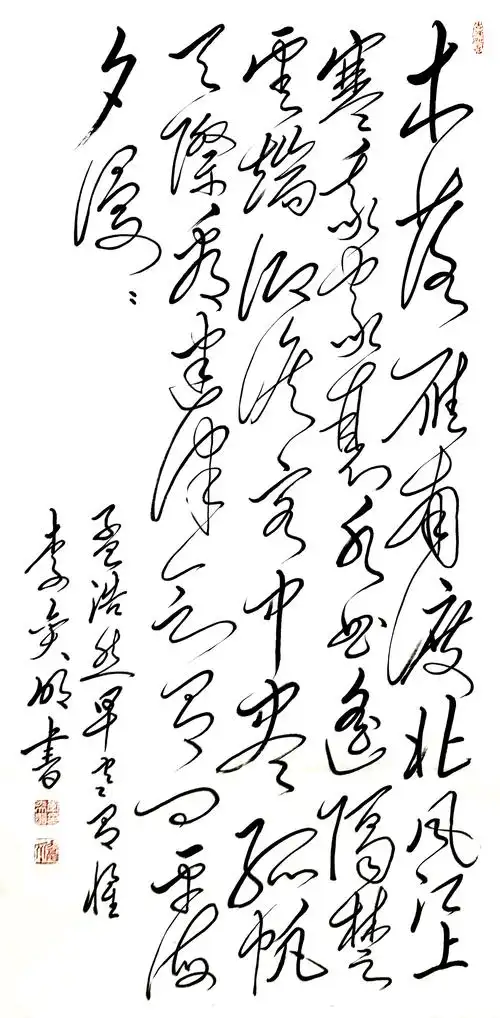 木落雁南度北风江上
寒我家襄水曲遙隔楚
雲端鄉淚客中尽孤帆
天際看迷津欲有问平海
夕漫〻
孟浩然早寒有懷
李明書